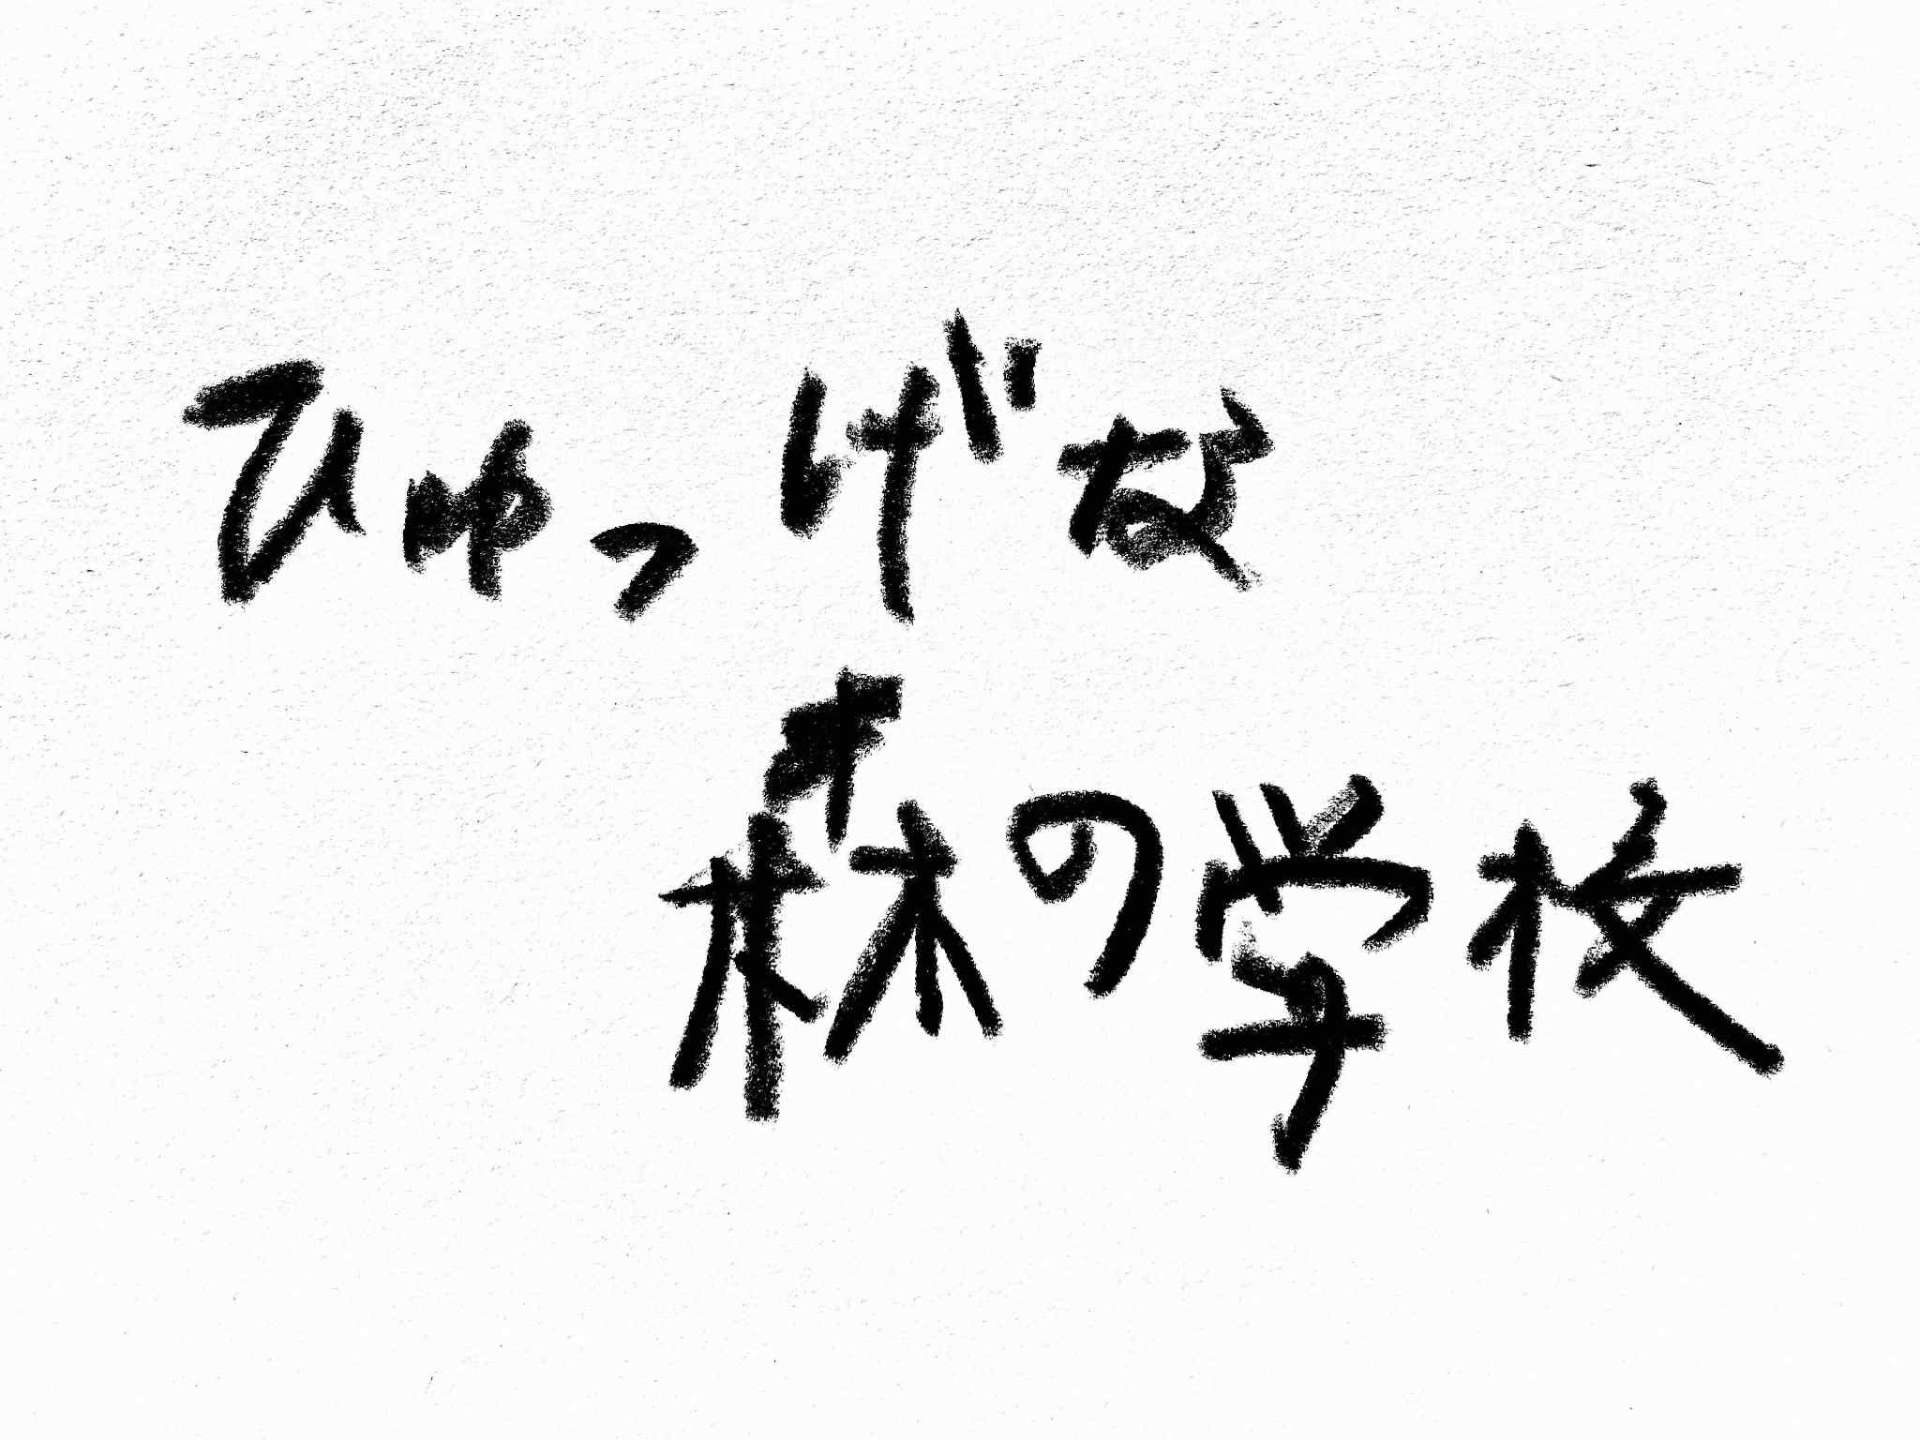 ひゅっげな
森の学校